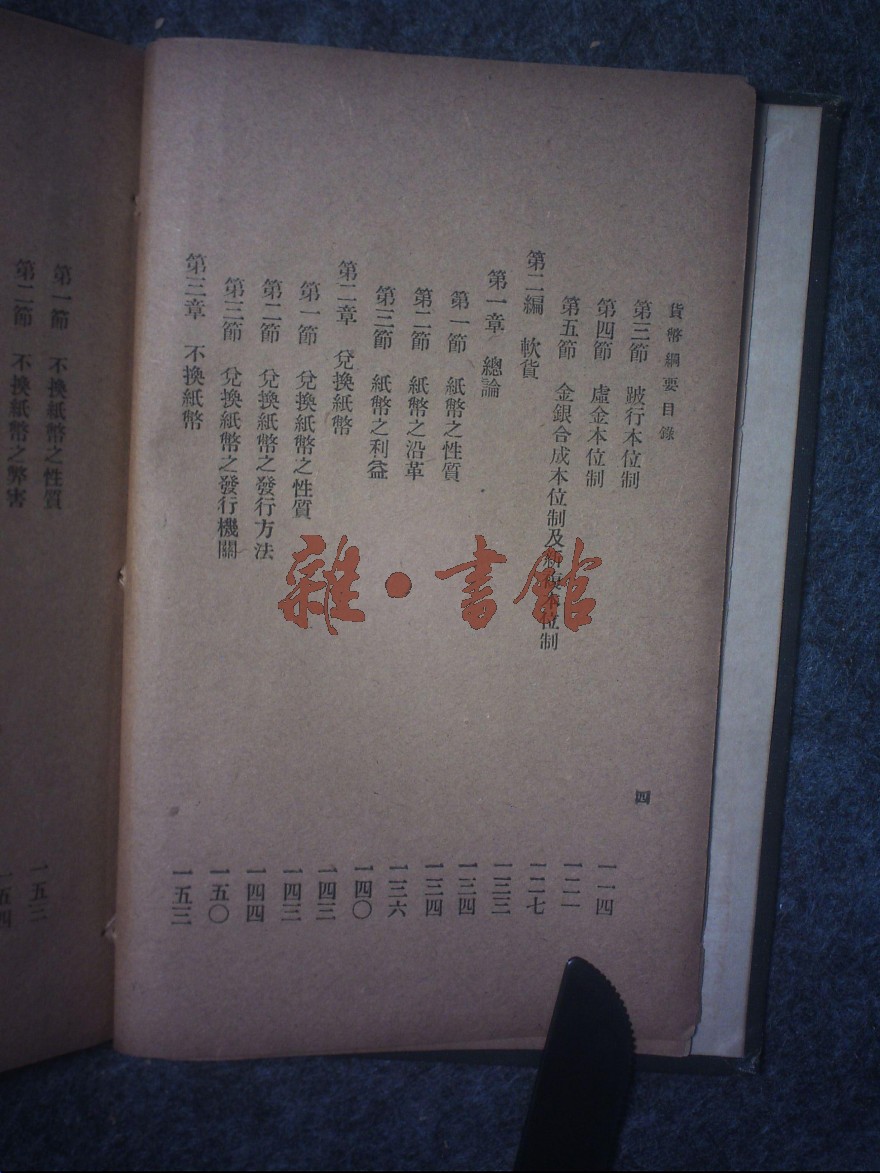 貨幣綱要目錄
四
第三節 跛行本位制 一一四
第四節 虛金本位制 一二一
第五節 金銀合成本位制及新複本位制 一二七
第二編 軟貨 一三三
第一章 總論 一三四
第一節 紙幣之性質 一三四
第二節 紙幣之沿革 一三六
第三節 紙幣之利益 一四〇
第二章 兌換紙幣 一四三
第一節 兌換紙幣之性質 一四三
第二節 兌換紙幣之發行方法 一四四
第三節 兌換紙幣之發行機關 一五〇
第三章 不換紙幣 一五三
第一節 不換紙幣之性質 一五三
第二節 不換紙幣之弊害 一五四
雜·書館